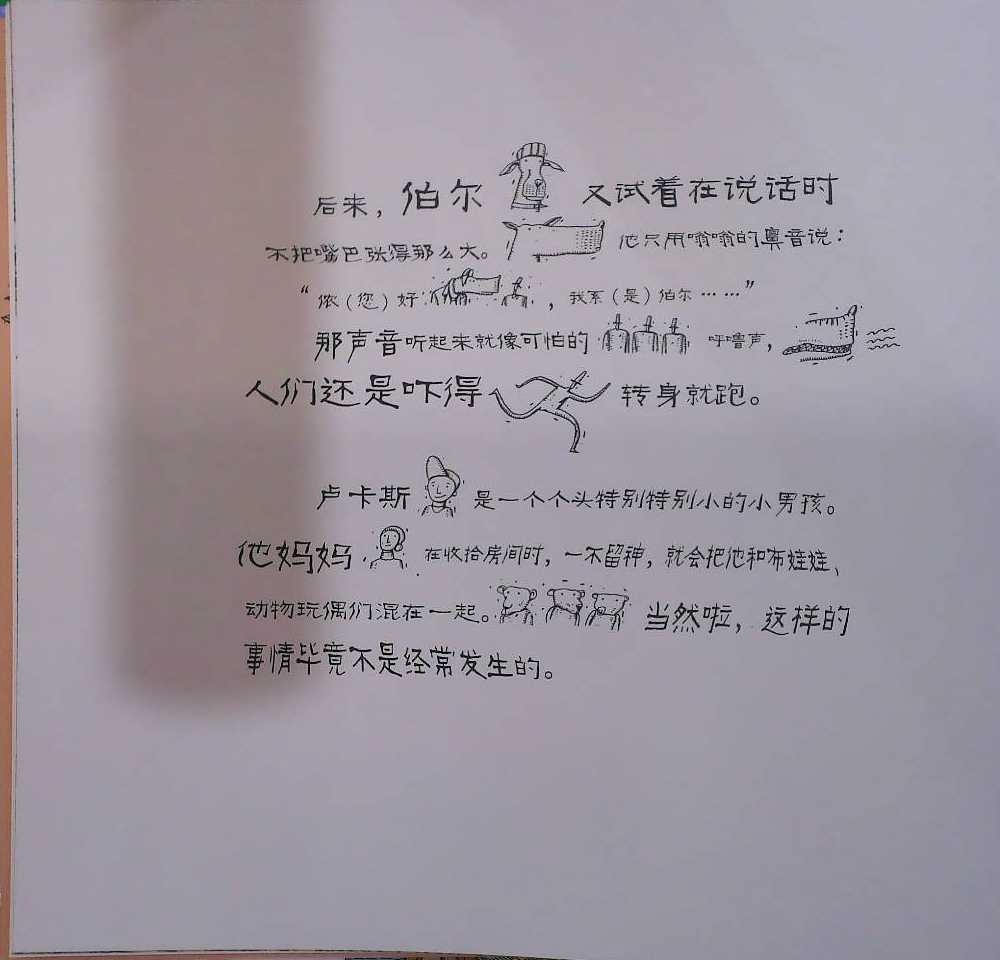 后来，伯尔又试着在说话时
不把嘴巴张得那么大。他只用嗡嗡的鼻音说：
“侬（您）好，我系（是）伯尔……”
那声音听起来就像可怕的呼噜声，
人们还是吓得转身就跑。
卢卡斯是一个个头特别特别小的小男孩。
他妈妈在收拾房间时，一不留神，就会把他和布娃娃、
动物玩偶们混在一起。当然啦，这样的
事情毕竟不是经常发生的。